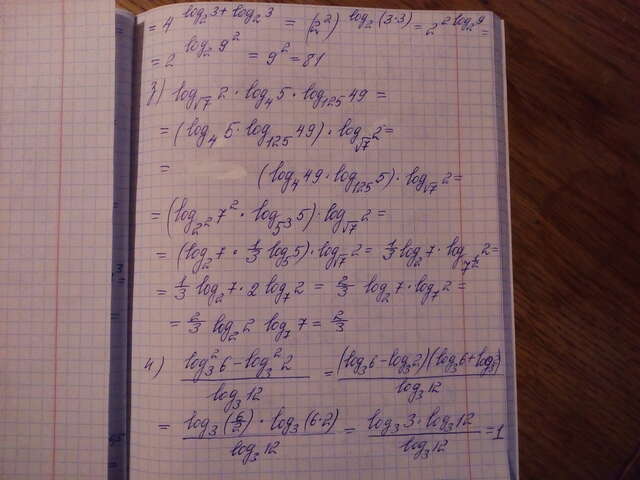 = 4^(log₂3 + log₂3) = (2²)^(log₂(3·3)) = 2^(2log₂9) =
= 2^(log₂9²) = 9² = 81
з) log_√7 2 · log₄5 · log₁₂₅49 =
= (log₄5 · log₁₂₅49) · log_√7 2 =
= (log₄49 · log₁₂₅5) · log_√7 2 =
= (log_2² 7² · log_5³ 5) · log_√7 2 =
= (log₂7 · 1/3 log₅5) · log_√7 2 = 1/3 log₂7 · log_7^(1/2) 2 =
= 1/3 log₂7 · 2 log₇2 = 2/3 log₂7 · log₇2 =
= 2/3 log₂2 log₇7 = 2/3
и) (log₃²6 - log₃²2)/(log₃12) = ((log₃6 - log₃2)(log₃6 + log₃2))/(log₃12)
= (log₃(6/2) · log₃(6·2))/(log₃12) = (log₃3 · log₃12)/(log₃12) = 1